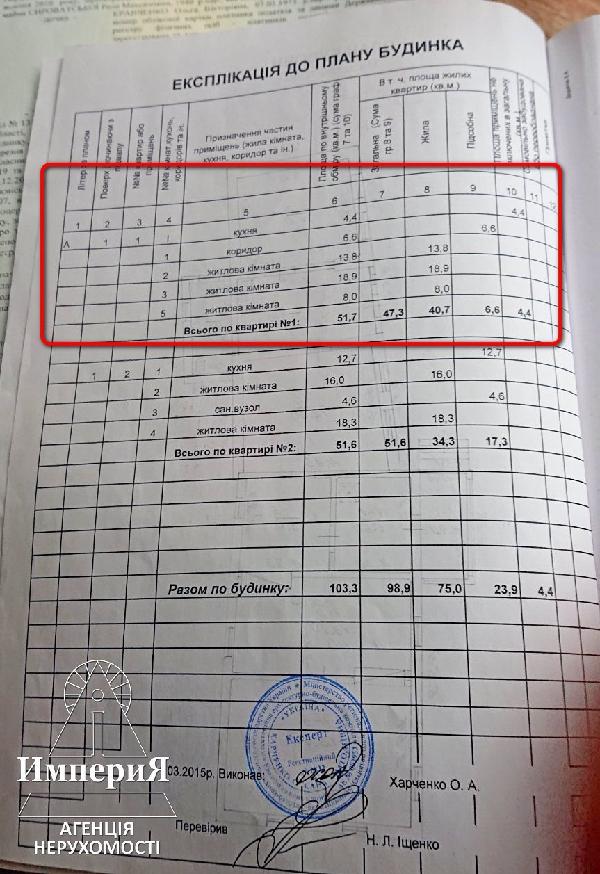 ЕКСПЛІКАЦІЯ ДО ПЛАНУ БУДИНКА
Літер за планом
Поверхи, починаючи з підвалу
№№ квартир або приміщень
№№ кімнат кухонь, коридорів та ін.
Призначення частин приміщень (жила кімната, кухня, коридор та ін.)
Площа по внутрішньому обміру (кв.м.) (сума граф 7 та 10)
В т. ч. площа жилих квартир (кв.м.)
Загальна (Сума гр.8 та 9)
Жила
Підсобна
1 2 3 4 5 6 7 8 9 10 11 12
А 1 1 I кухня 4,4 4,4
1 коридор 6,6 6,6
2 житлова кімната 13,8 13,8
3 житлова кімната 18,9 18,9
5 житлова кімната 8,0 8,0
Всього по квартирі №1: 51,7 47,3 40,7 6,6 4,4
1 2 1 кухня 12,7 12,7
2 житлова кімната 16,0 16,0
3 сан.вузол 4,6 4,6
4 житлова кімната 18,3 18,3
Всього по квартирі №2: 51,6 51,6 34,3 17,3
Разом по будинку: 103,3 98,9 75,0 23,9 4,4
УКРАЇНА
Експерт
03.2015р. Виконав: Харченко О. А.
Перевірив Н. Л. Іщенко
ИмпериЯ
АГЕНЦІЯ
НЕРУХОМОСТІ